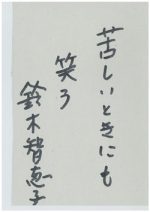 苦しいときにも
笑う
鈴木智恵子